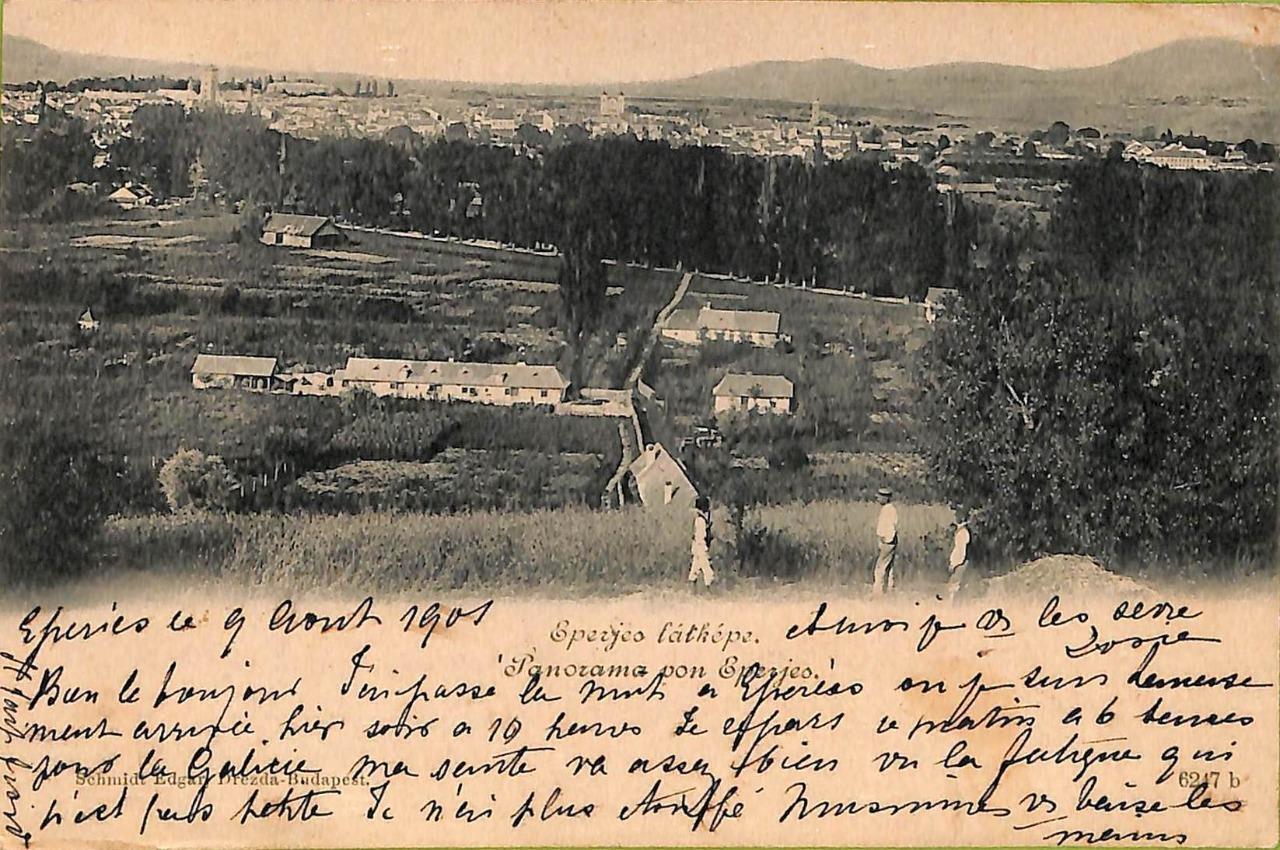 Eperiès ce 9 Aout 1901
Eperjes látképe.
Panorama von Eperjes.
et moi je vs les serre
Bon le bonjour J'ai passé la nuit a Eperiès ou je suis
ment arrivée hier soir a 10 heures Je repars ce matin a 6 heures
pour la Galicie ma santé va assez bien vu la fatigue qui
Schmidt Edgar, Drezda-Budapest.
6247 b
n'est pas petite Je n'ai plus vs baise les
mains